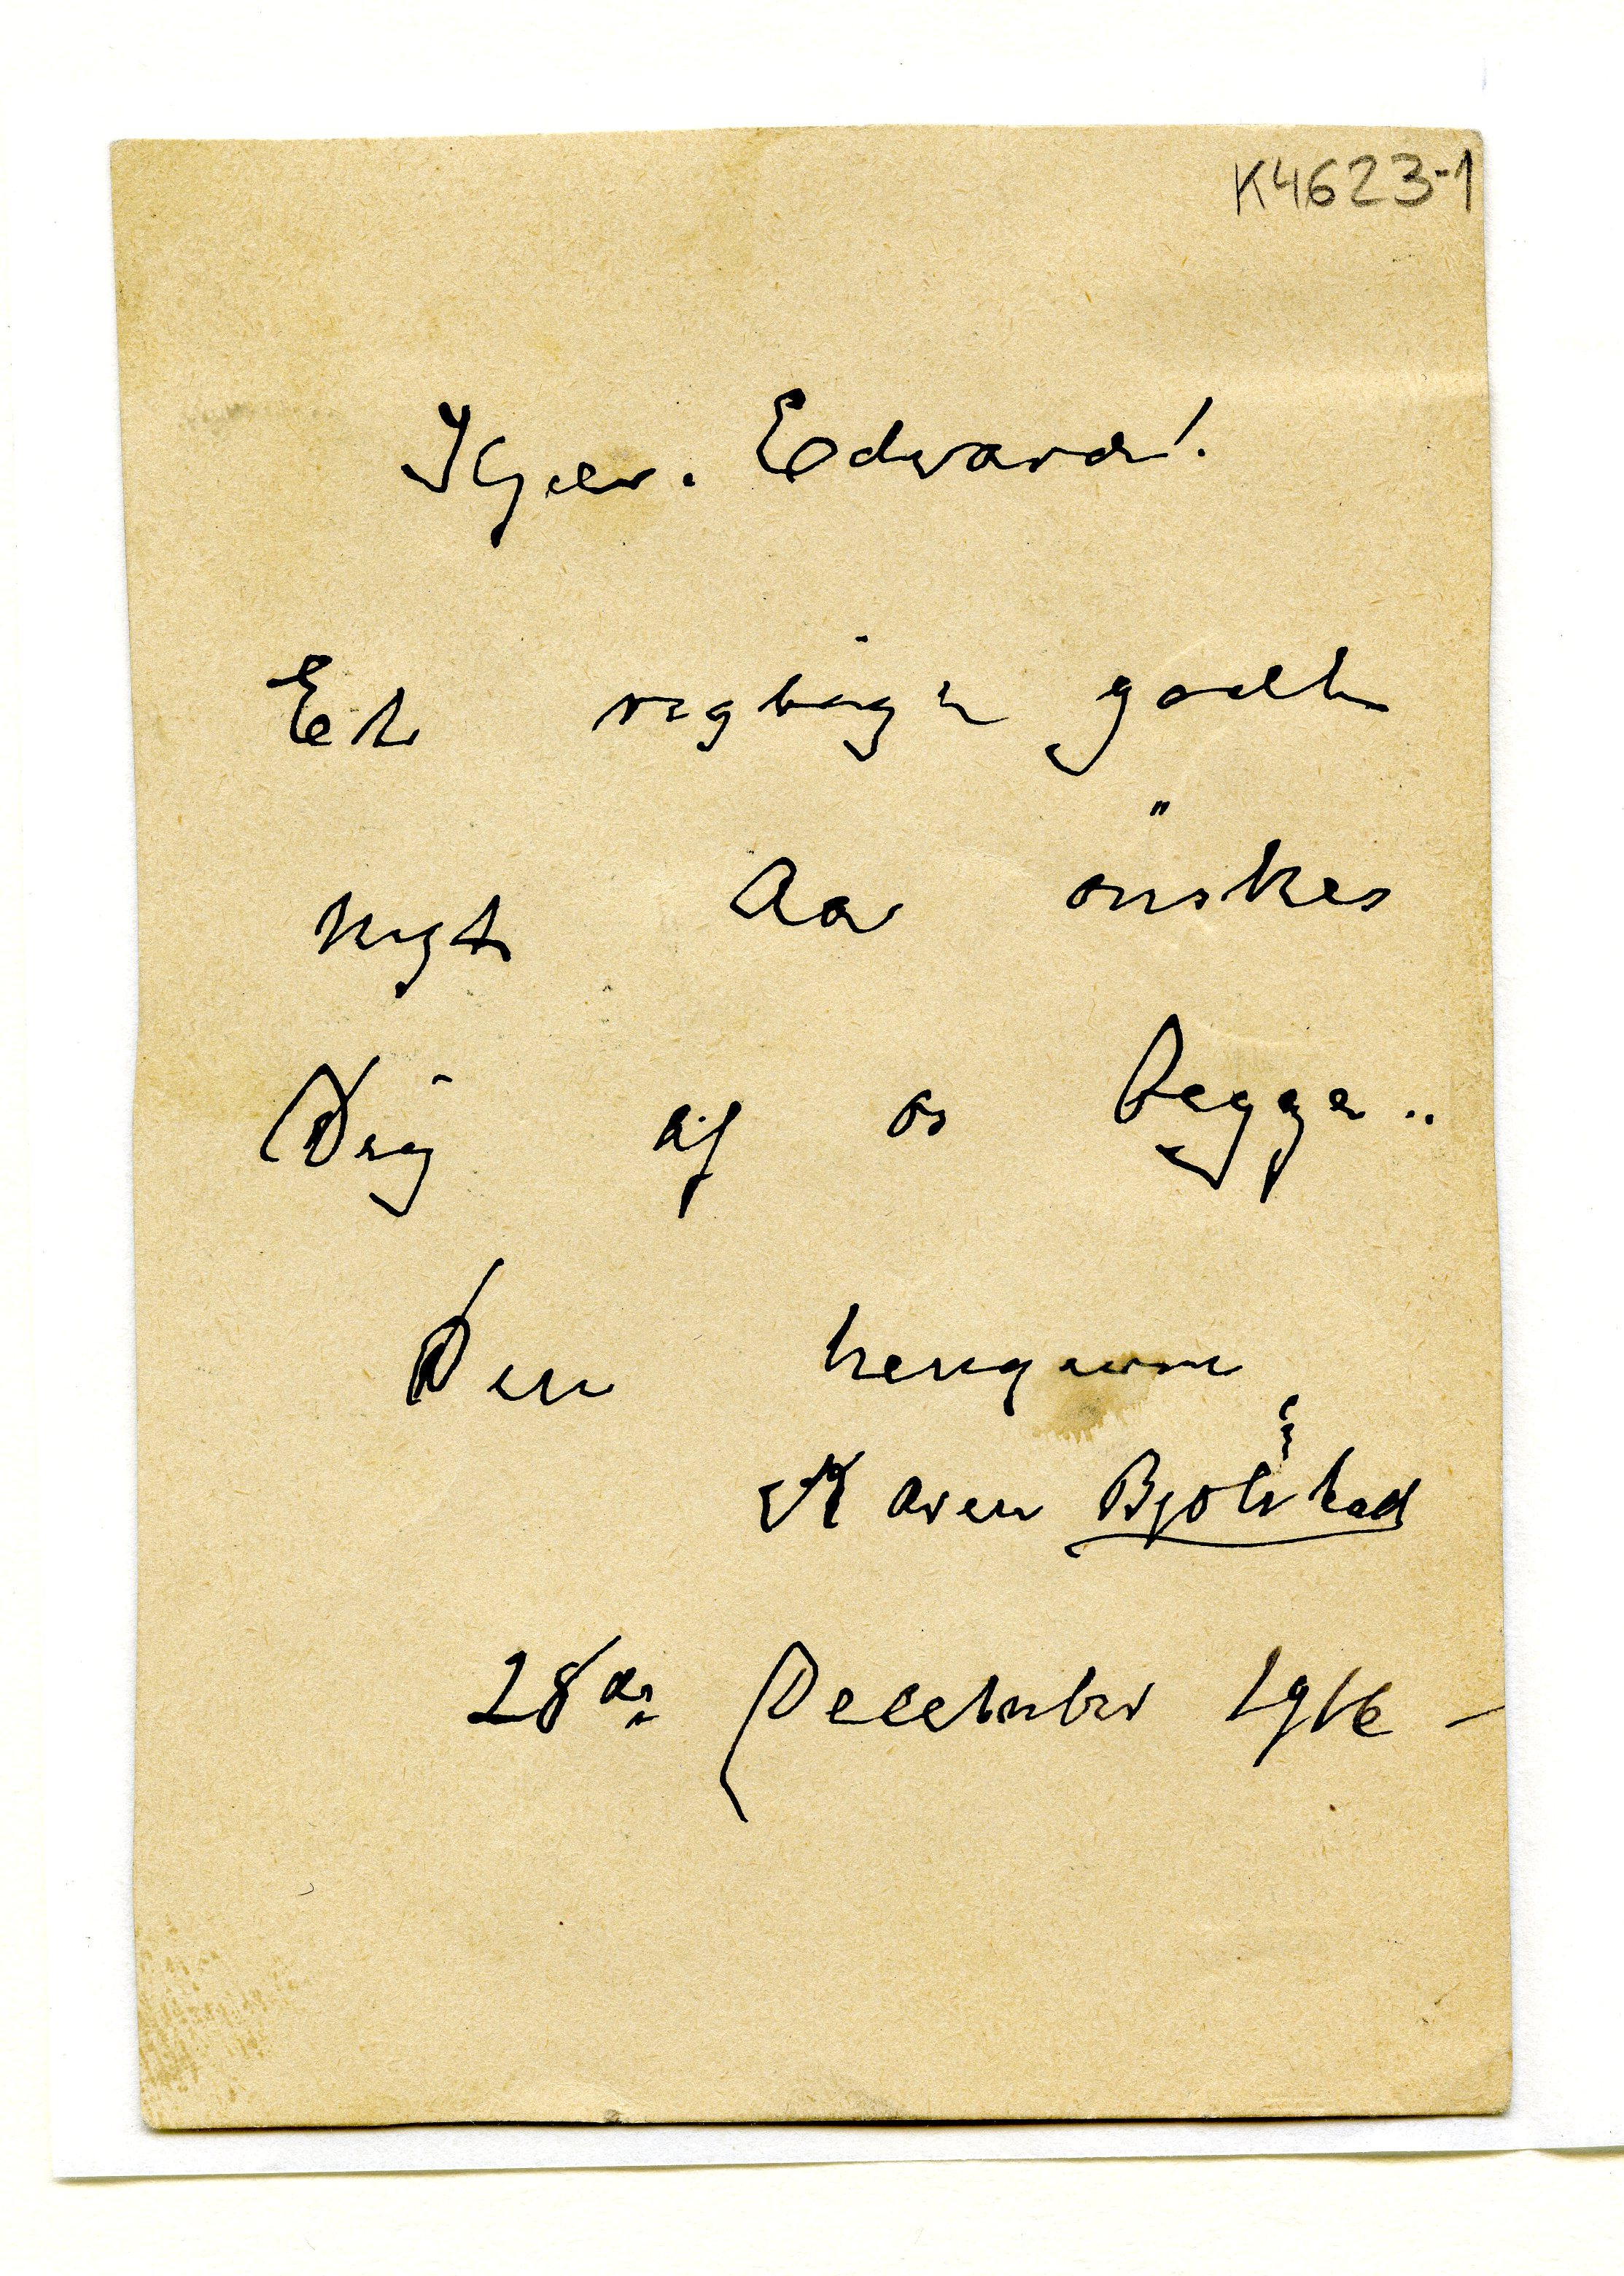 K4623-1
Kjær. Edvard!
Et rigtigt godt
nyt Aar önskes
Dig af os begge..
Din hengivne
Karen Bjölstad
28de December 1916 –